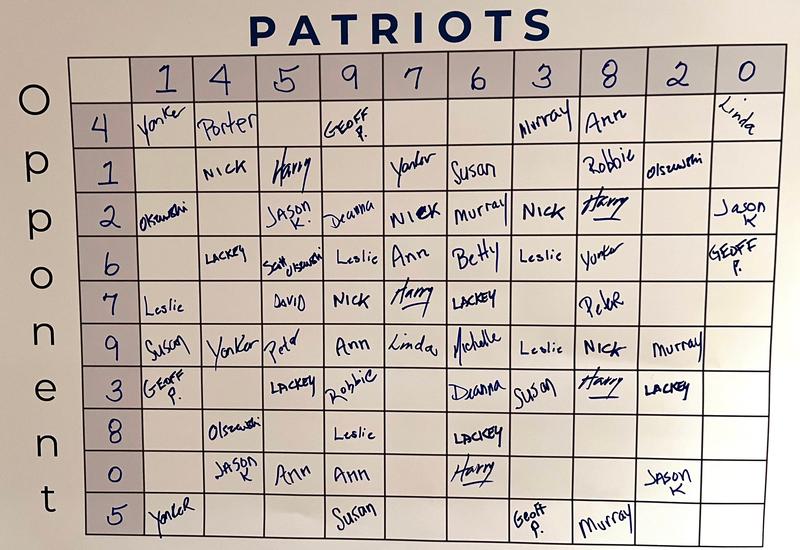 PATRIOTS
Opponent
1 4 5 9 7 6 3 8 2 0
4 Yonker Porter GEOFF P. Murray Ann Linda
1 NICK Harry Yonker Susan Robbie Olszewski
2 Olszewski JASON K. Deanna NICK Murray NICK Harry Jason K
6 LACKEY Scott Olszewski Leslie Ann Betty Leslie Yonker GEOFF P.
7 Leslie DAVID NICK Harry LACKEY PeteR
9 Susan Yonker Peter Ann Linda Michelle Leslie NICK Murray
3 GEOFF P. LACKEY Robbie Deanna Susan Harry LACKEY
8 Olszewski Leslie LACKEY
0 JASON K Ann Ann Harry JASON K
5 YonkeR Susan Geoff P. Murray